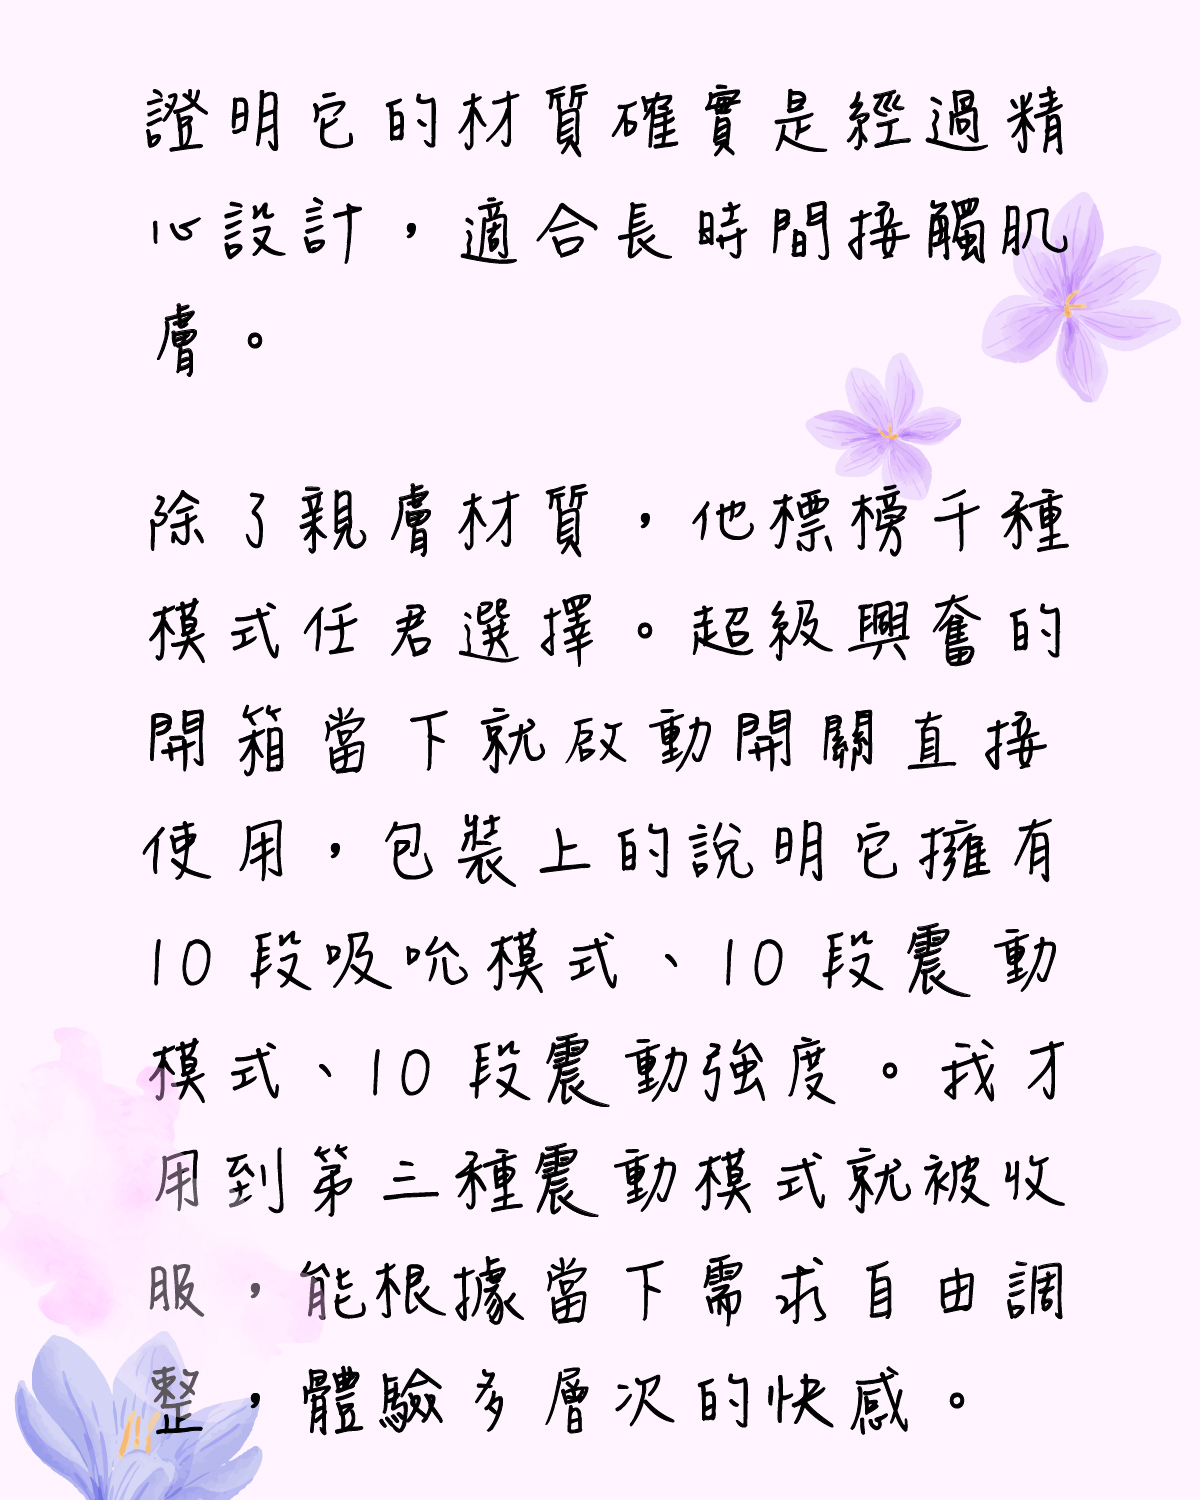 證明它的材質確實是經過精
心設計，適合長時間接觸肌
膚。
除了親膚材質，他標榜千種
模式任君選擇。超級興奮的
開箱當下就啟動開關直接
使用，包裝上的說明它擁有
10 段吸吮模式、10 段震動
模式、10 段震動強度。我才
用到第三種震動模式就被收
服，能根據當下需求自由調
整，體驗多層次的快感。